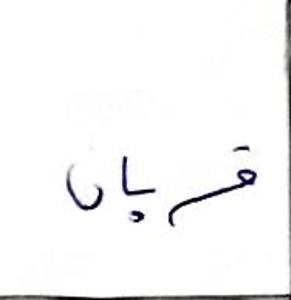 قربان